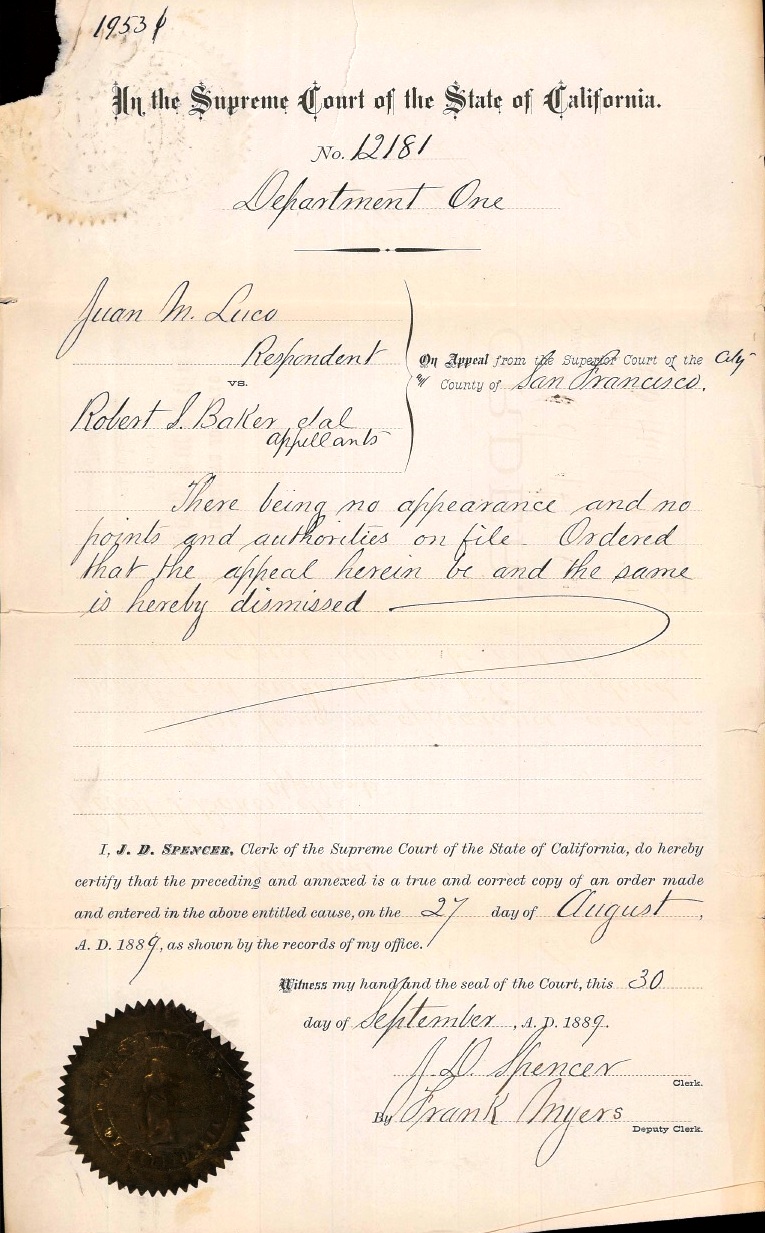 19531
In the Supreme Court of the State of California.
No. 12181
Department One
Juan M. Luco
Respondent
vs.
Robert S. Baker et al
appellants
On Appeal from the Superior Court of the City
and County of San Francisco.
There being no appearance and no
points and authorities on file. Ordered
that the appeal herein be and the same
is hereby dismissed
I, J. D. SPENCER, Clerk of the Supreme Court of the State of California, do hereby
certify that the preceding and annexed is a true and correct copy of an order made
and entered in the above entitled cause, on the 27 day of August,
A. D. 1889, as shown by the records of my office.
Witness my hand and the seal of the Court, this 30
day of September, A. D. 1889.
J. D. Spencer
Clerk.
By Frank Myers
Deputy Clerk.